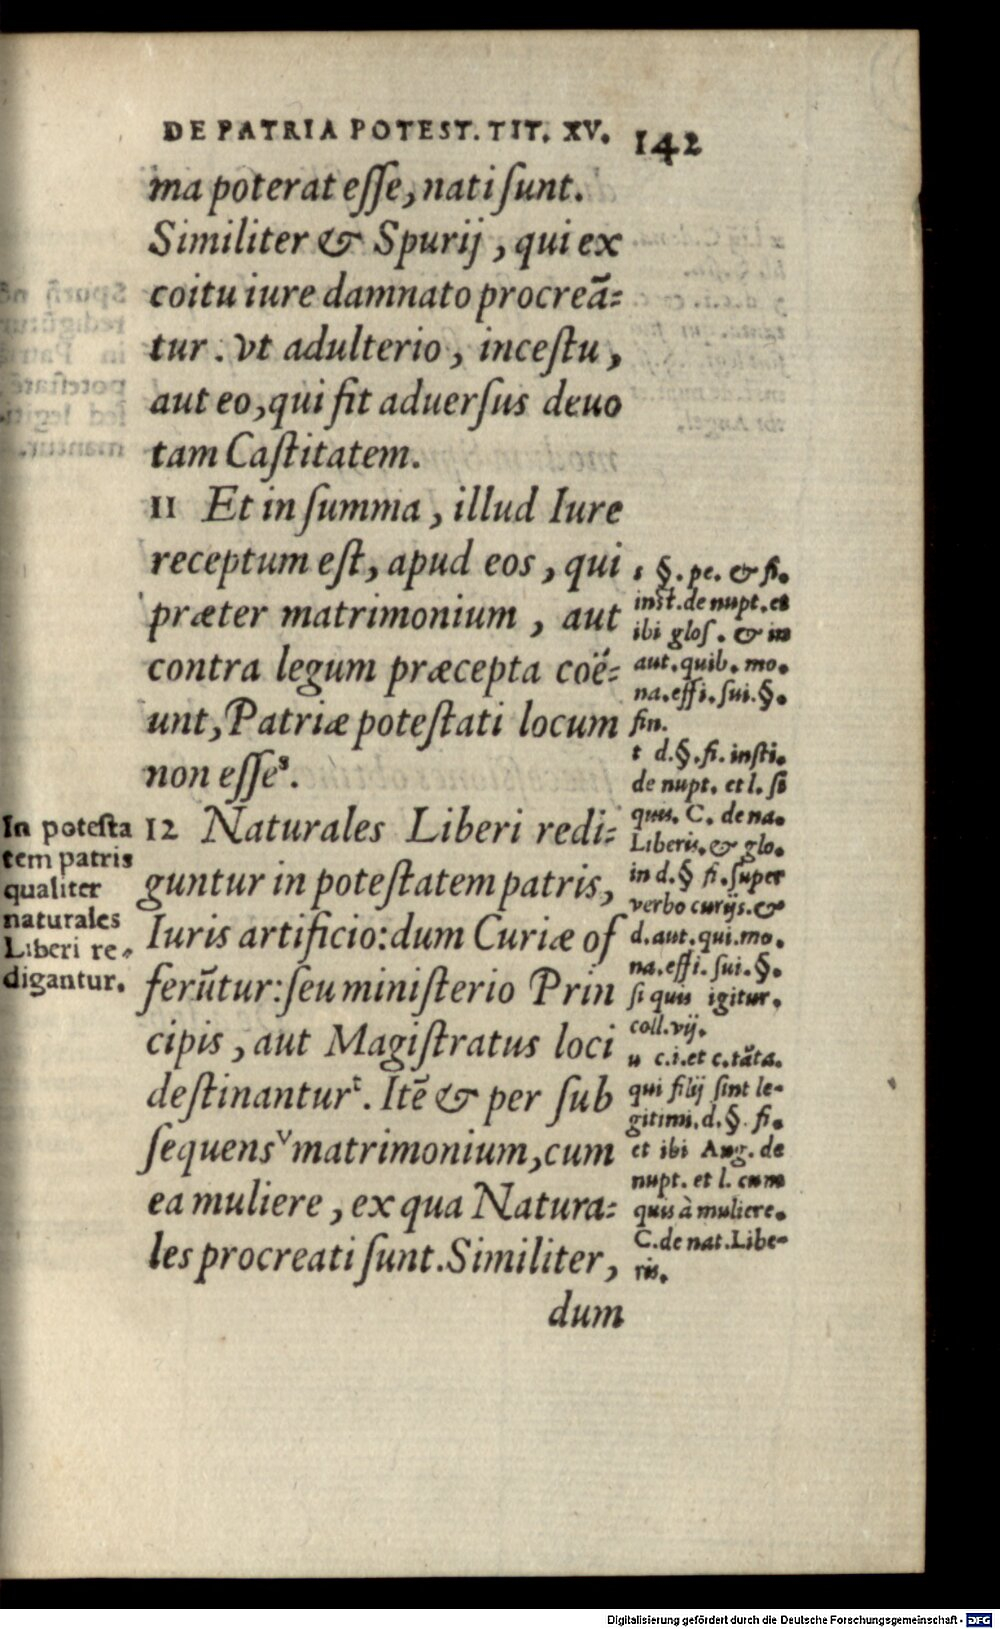 DE PATRIA POTEST. TIT. XV. 142
ma poterat esse, nati sunt.
Similiter & Spurij, qui ex
coitu iure damnato procreã=
tur. vt adulterio, incestu,
aut eo, qui fit aduersus deuo
tam Castitatem.
11 Et in summa, illud Iure
receptum est, apud eos, qui
præter matrimonium, aut
contra legum præcepta coë=
unt, Patriæ potestati locum
non esse s.
12 Naturales Liberi redi=
guntur in potestatem patris,
Iuris artificio: dum Curiæ of
ferũtur: seu ministerio Prin
cipis, aut Magistratus loci
destinantur t. Itẽ & per sub
sequens v matrimonium, cum
ea muliere, ex qua Natura=
les procreati sunt. Similiter,
dum
In potesta
tem patris
qualiter
naturales
Liberi re-
digantur.
s §. pe. & fi.
inst. de nupt. et
ibi glos. & in
aut. quib. mo.
na. effi. sui. §.
fin.
t d. §. fi. insti.
de nupt. et l. si
quis. C. de na.
Liberis. & glo.
in d. § fi. super
verbo curijs. &
d. aut. qui. mo.
na. effi. sui. §.
si quis igitur.
coll. vij.
u c. i. et c. tãta.
qui filij sint le-
gitimi. d. §. fi.
et ibi Ang. de
nupt. et l. cum
quis à muliere.
C. de nat. Libe-
ris.
Digitalisierung gefördert durch die Deutsche Forschungsgemeinschaft - DFG